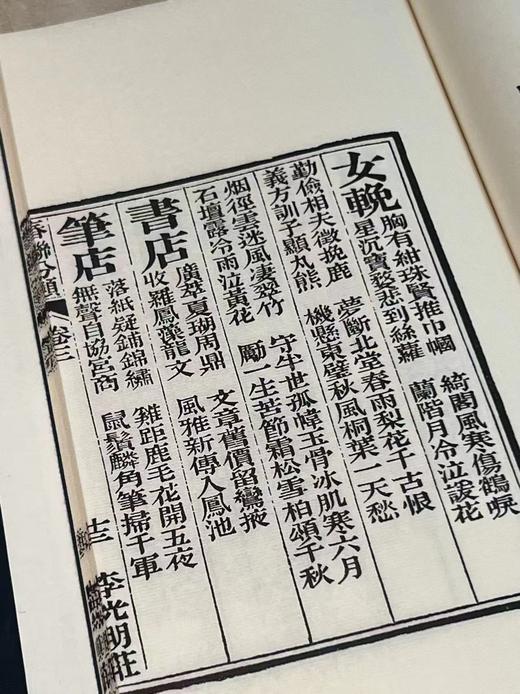 女輓
胸有紺珠賢推巾幗
星沉寶婺悲到絲蘿
綺閣風寒傷鶴唳
蘭階月冷泣諼花
勤儉相夫徵挽鹿
義方訓子顯丸熊
夢斷北堂春雨梨花千古恨
機懸東壁秋風桐葉一天愁
烟徑雲迷風凄翠竹
石壇露冷雨泣黃花
守半世孤幃玉骨冰肌寒六月
勵一生苦節霜松雪柏頌千秋
書店
廣萃夏瑚周鼎
收羅鳳藻龍文
文章舊價留鸞掖
風雅新傳入鳳池
筆店
落紙疑鋪錦繡
無聲自協宮商
雞距鹿毛花開五夜
鼠鬚麟角筆掃千軍
春聯分類 卷三
十三
李光明莊